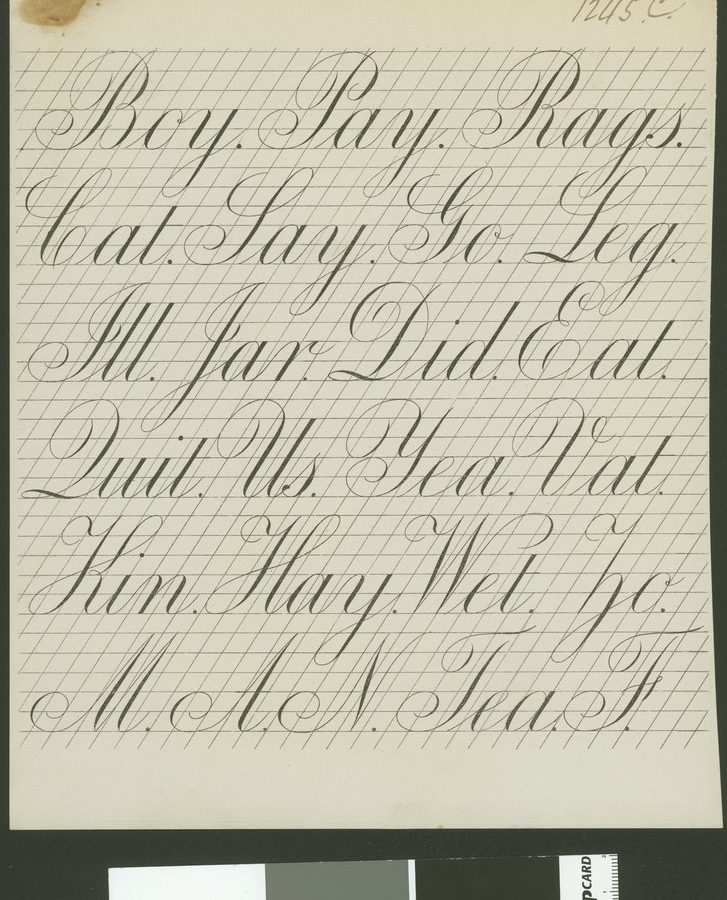 1245.C.
Boy. Pay. Rags.
Cat. Say. Go. Leg.
Ill. Jar. Did. Eat.
Quit. Us. Yea. Vat.
Kin. Hay. Wet. Zo.
M. A. N. Tea. F.
CARD